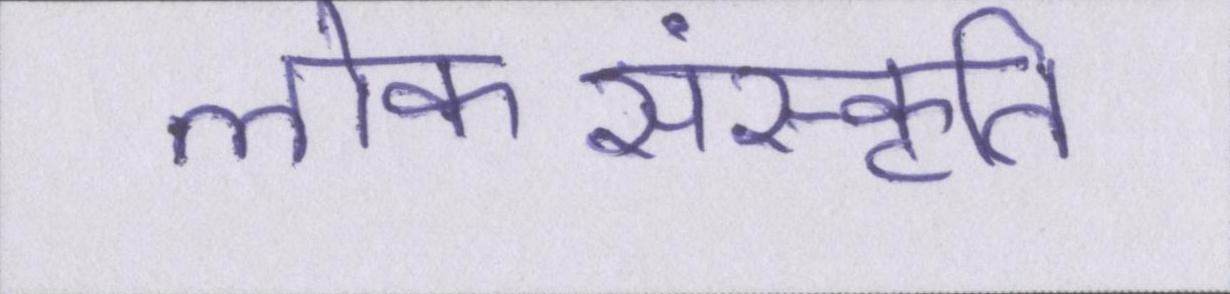 लोक संस्कृति